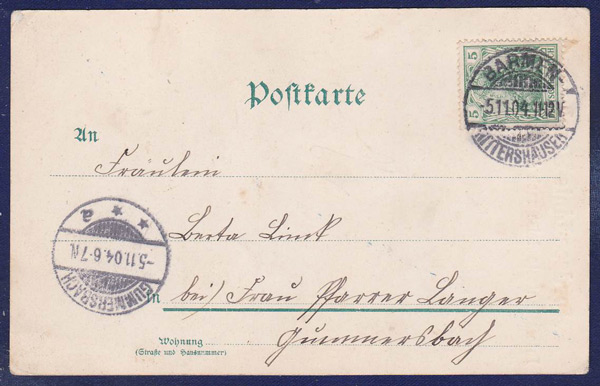 Postkarte
5
5
BARMEN-
-5.11.04.11-12V.
RITTERSHAUSEN
An
Fräulein
a
-5.11.04.6-7N.
GUMMERSBACH
Berta Linck
In bei Frau Pfarrer Langer
Gummersbach
Wohnung
(Straße und Hausnummer)